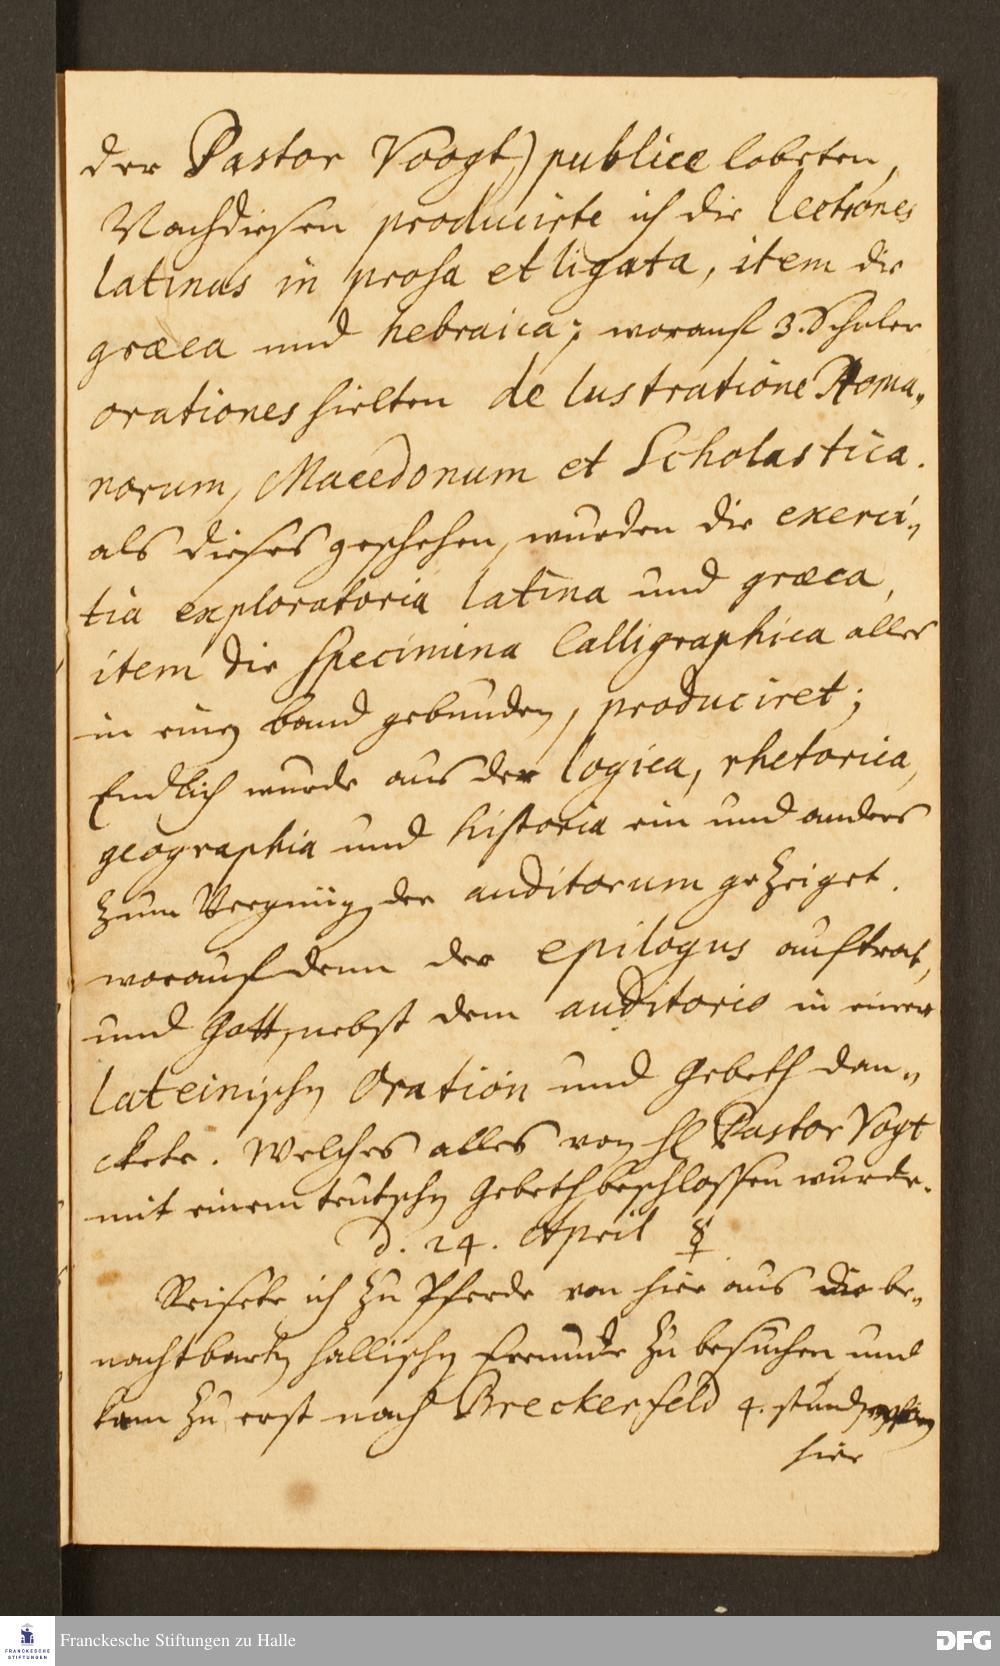 der Pastor Voogt) publice lobeten,
Nachdiesen producirte ich die lectiones
latinas in prosa et ligata, item die
græca und hebraica; worauf 3. Schuler
orationes hielten de lustratione Roma„
norum, Macedonum et Scholastica.
als dieses geschehen, wurden die exerci„
tia exploratoria latina und græca,
item die specimina Calligraphica alles
in einen band gebunden, produciret;
Endlich wurde aus der logica, rhetorica,
geographia und historia ein und anders
zum Vergnügen der auditorum gezeiget.
worauf denn der epilogus auftrat,
und Gott, nebst dem auditorio in einer
lateinischen Oration und Gebeth dan„
ckete. Welches alles von H Pastor Vogt
mit einem teutschen Gebeth beschlossen wurde.
d. 24. April ☿
Reisete ich zu Pferde von hier aus die be„
nachtbarten hallischen freunde zu besuchen und
kam zu erst nach Breckerfeld 4. stunden
hier
FRANCKESCHE
STIFTUNGEN
Franckesche Stiftungen zu Halle
DFG